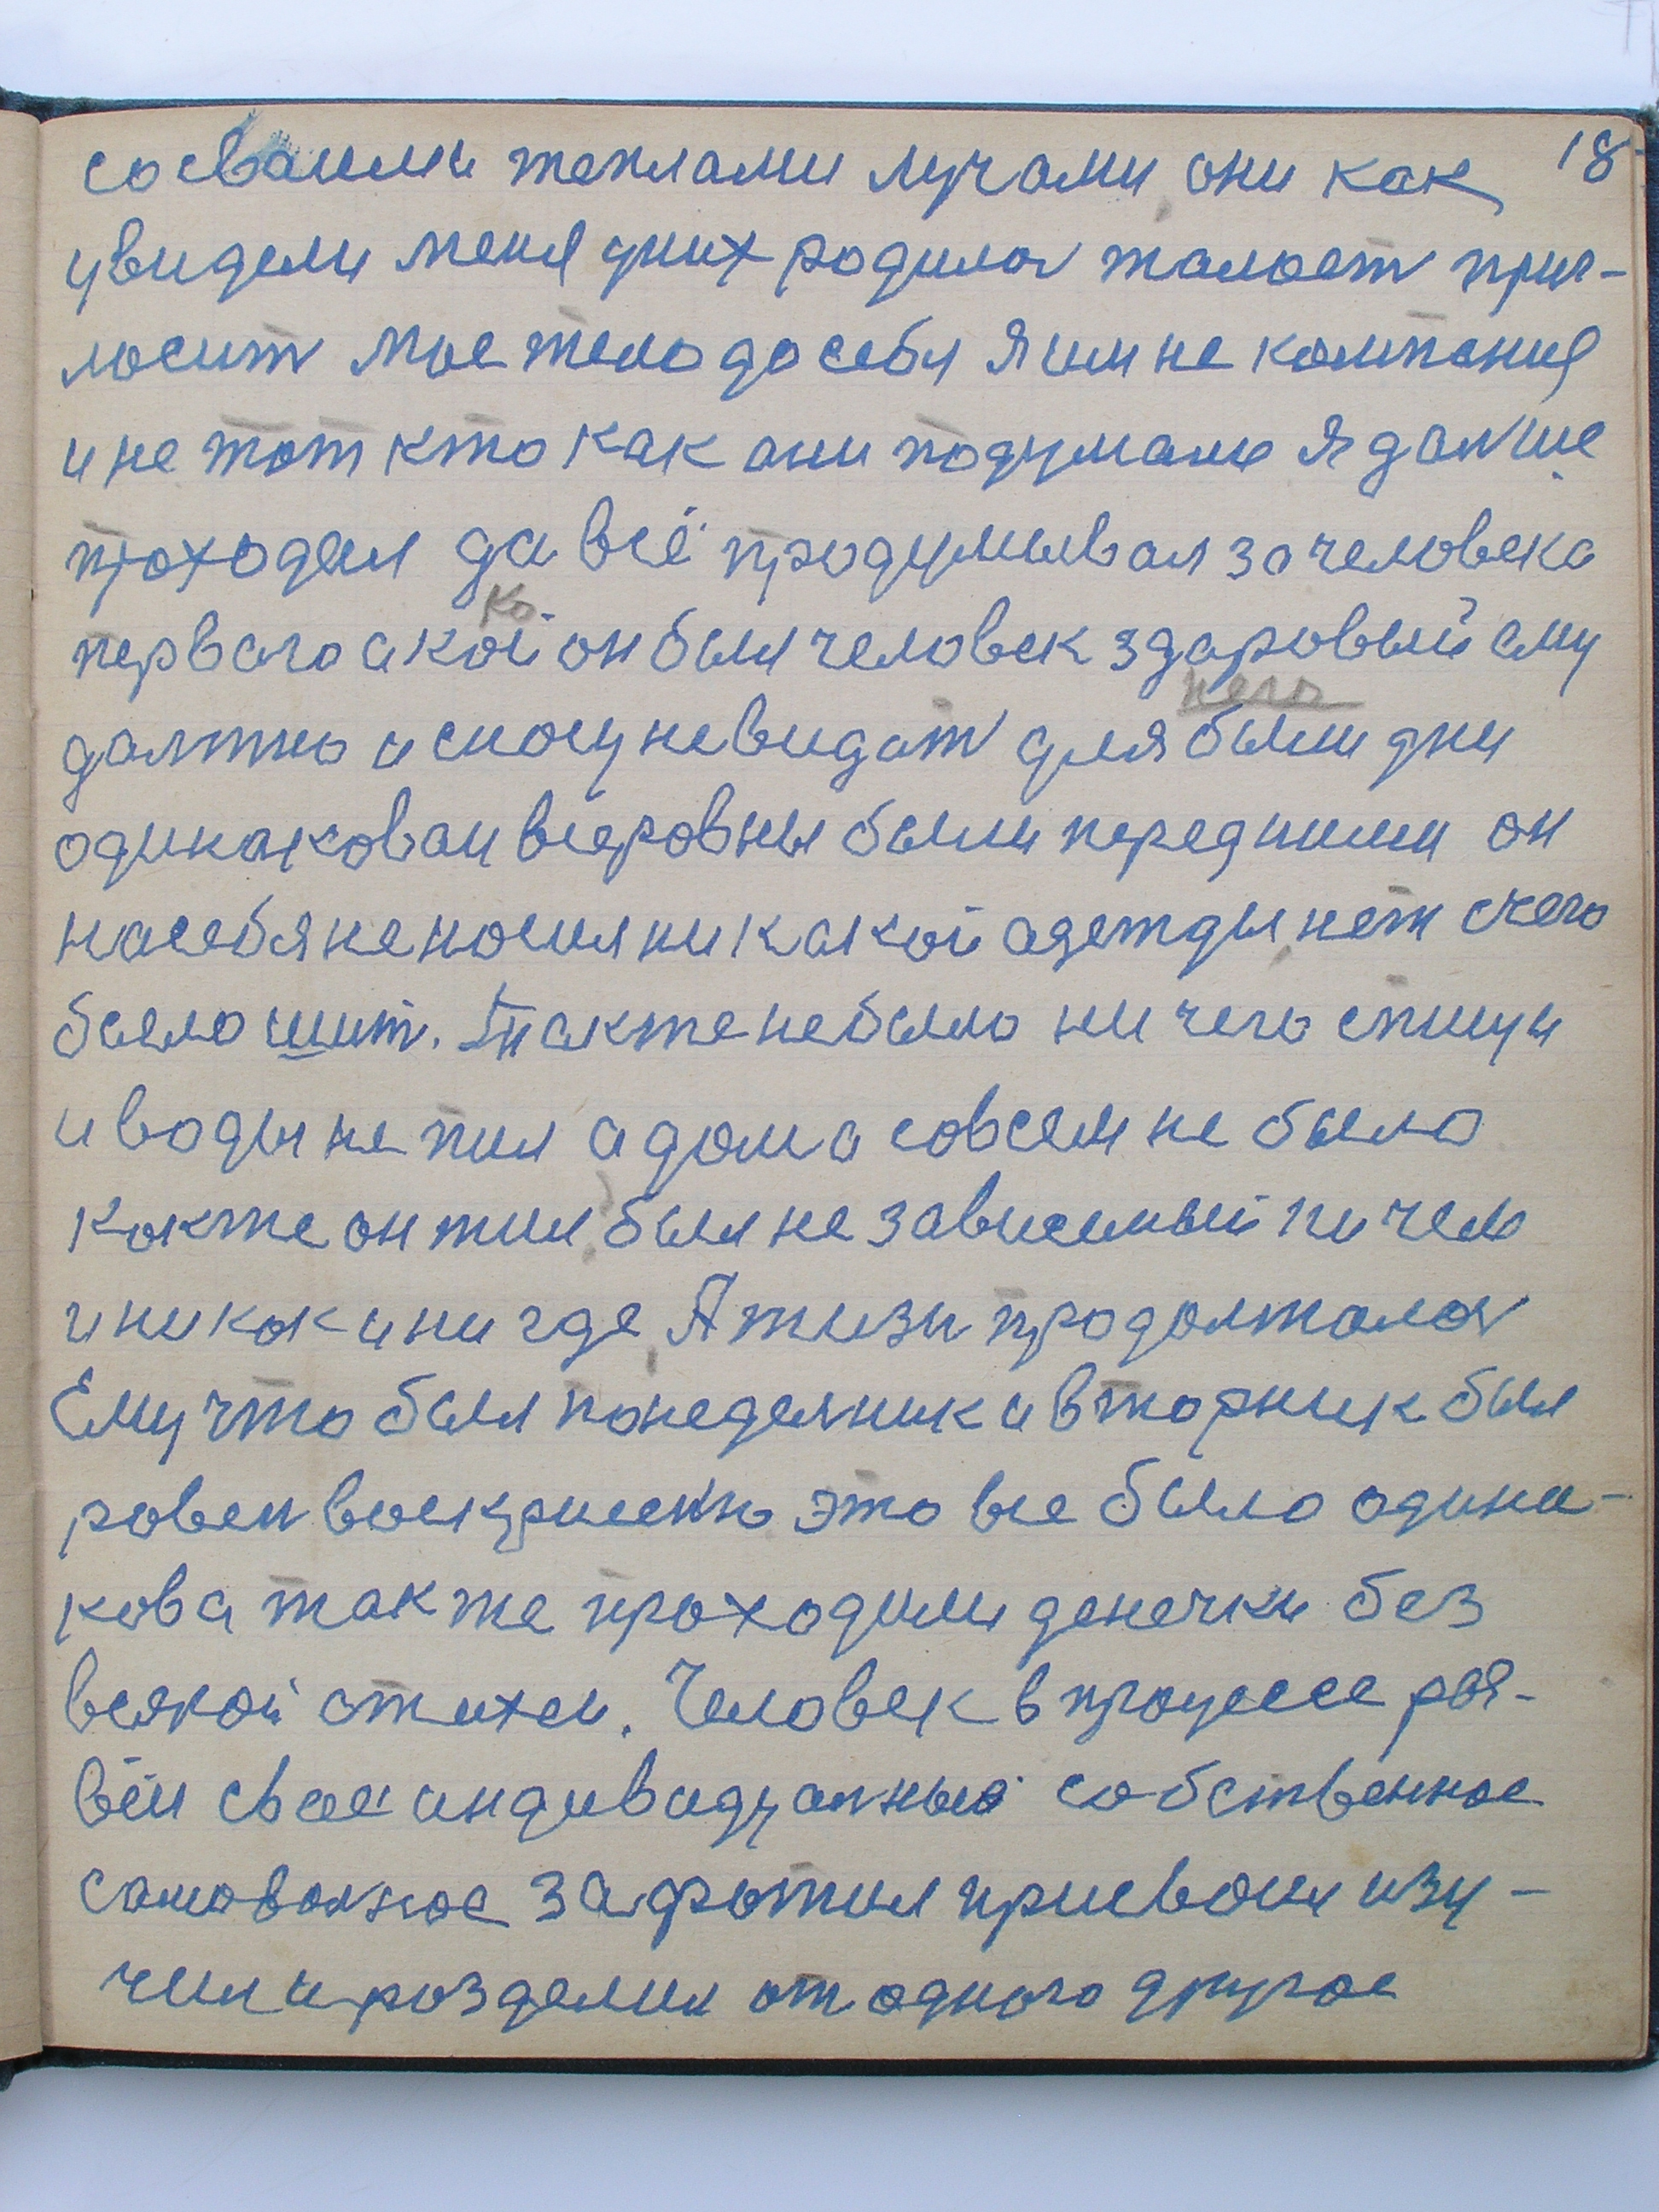 18
со сваими теплами лучами они как
увидели меня у них родилас жалост приг-
лосит мое тело до себя Я им не компания
и не тот кто как они подумали Я далше
проходил да всё продумывал за человека
ко
первого а кой он был человек здаровый ему
него
должно и сносу невидат для были дни
одинакован все ровны были перед ними он
на себя не носил ни какой адежды нет счего
было шит. Также не было ни чего с пищи
и воды не пил а дома совсем не было
как же он жил был не зависимый ни чем
и ни как и ни где А жизн продолжалас
Ему что был понеделник а вторник был
ровен воскрисенью это все было одина-
кова так же проходили денечки без
всякой стихеи. Человек в процессе роз-
вёл свае индивидуалные собственное
самоволное захватил присвоил изу-
чил и розделил от одного другое